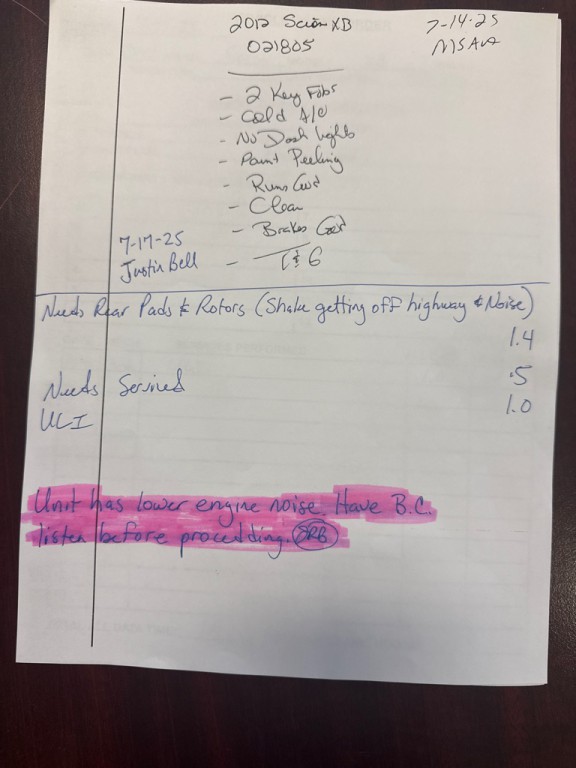 2012 Scion XB
7-14-25
021805
- 2 Key Fobs
- Cold A/C
- No Dash lights
- Paint Peeling
- Runs Good
- Clean
- Brakes Good
7-17-25
Justin Bell
Needs Rear Pads & Rotors (Shake getting off highway & Noise)
1.4
Needs Serviced
.5
UCI
1.0
Unit has lower engine noise Have B.C.
listen before procedding. JRB